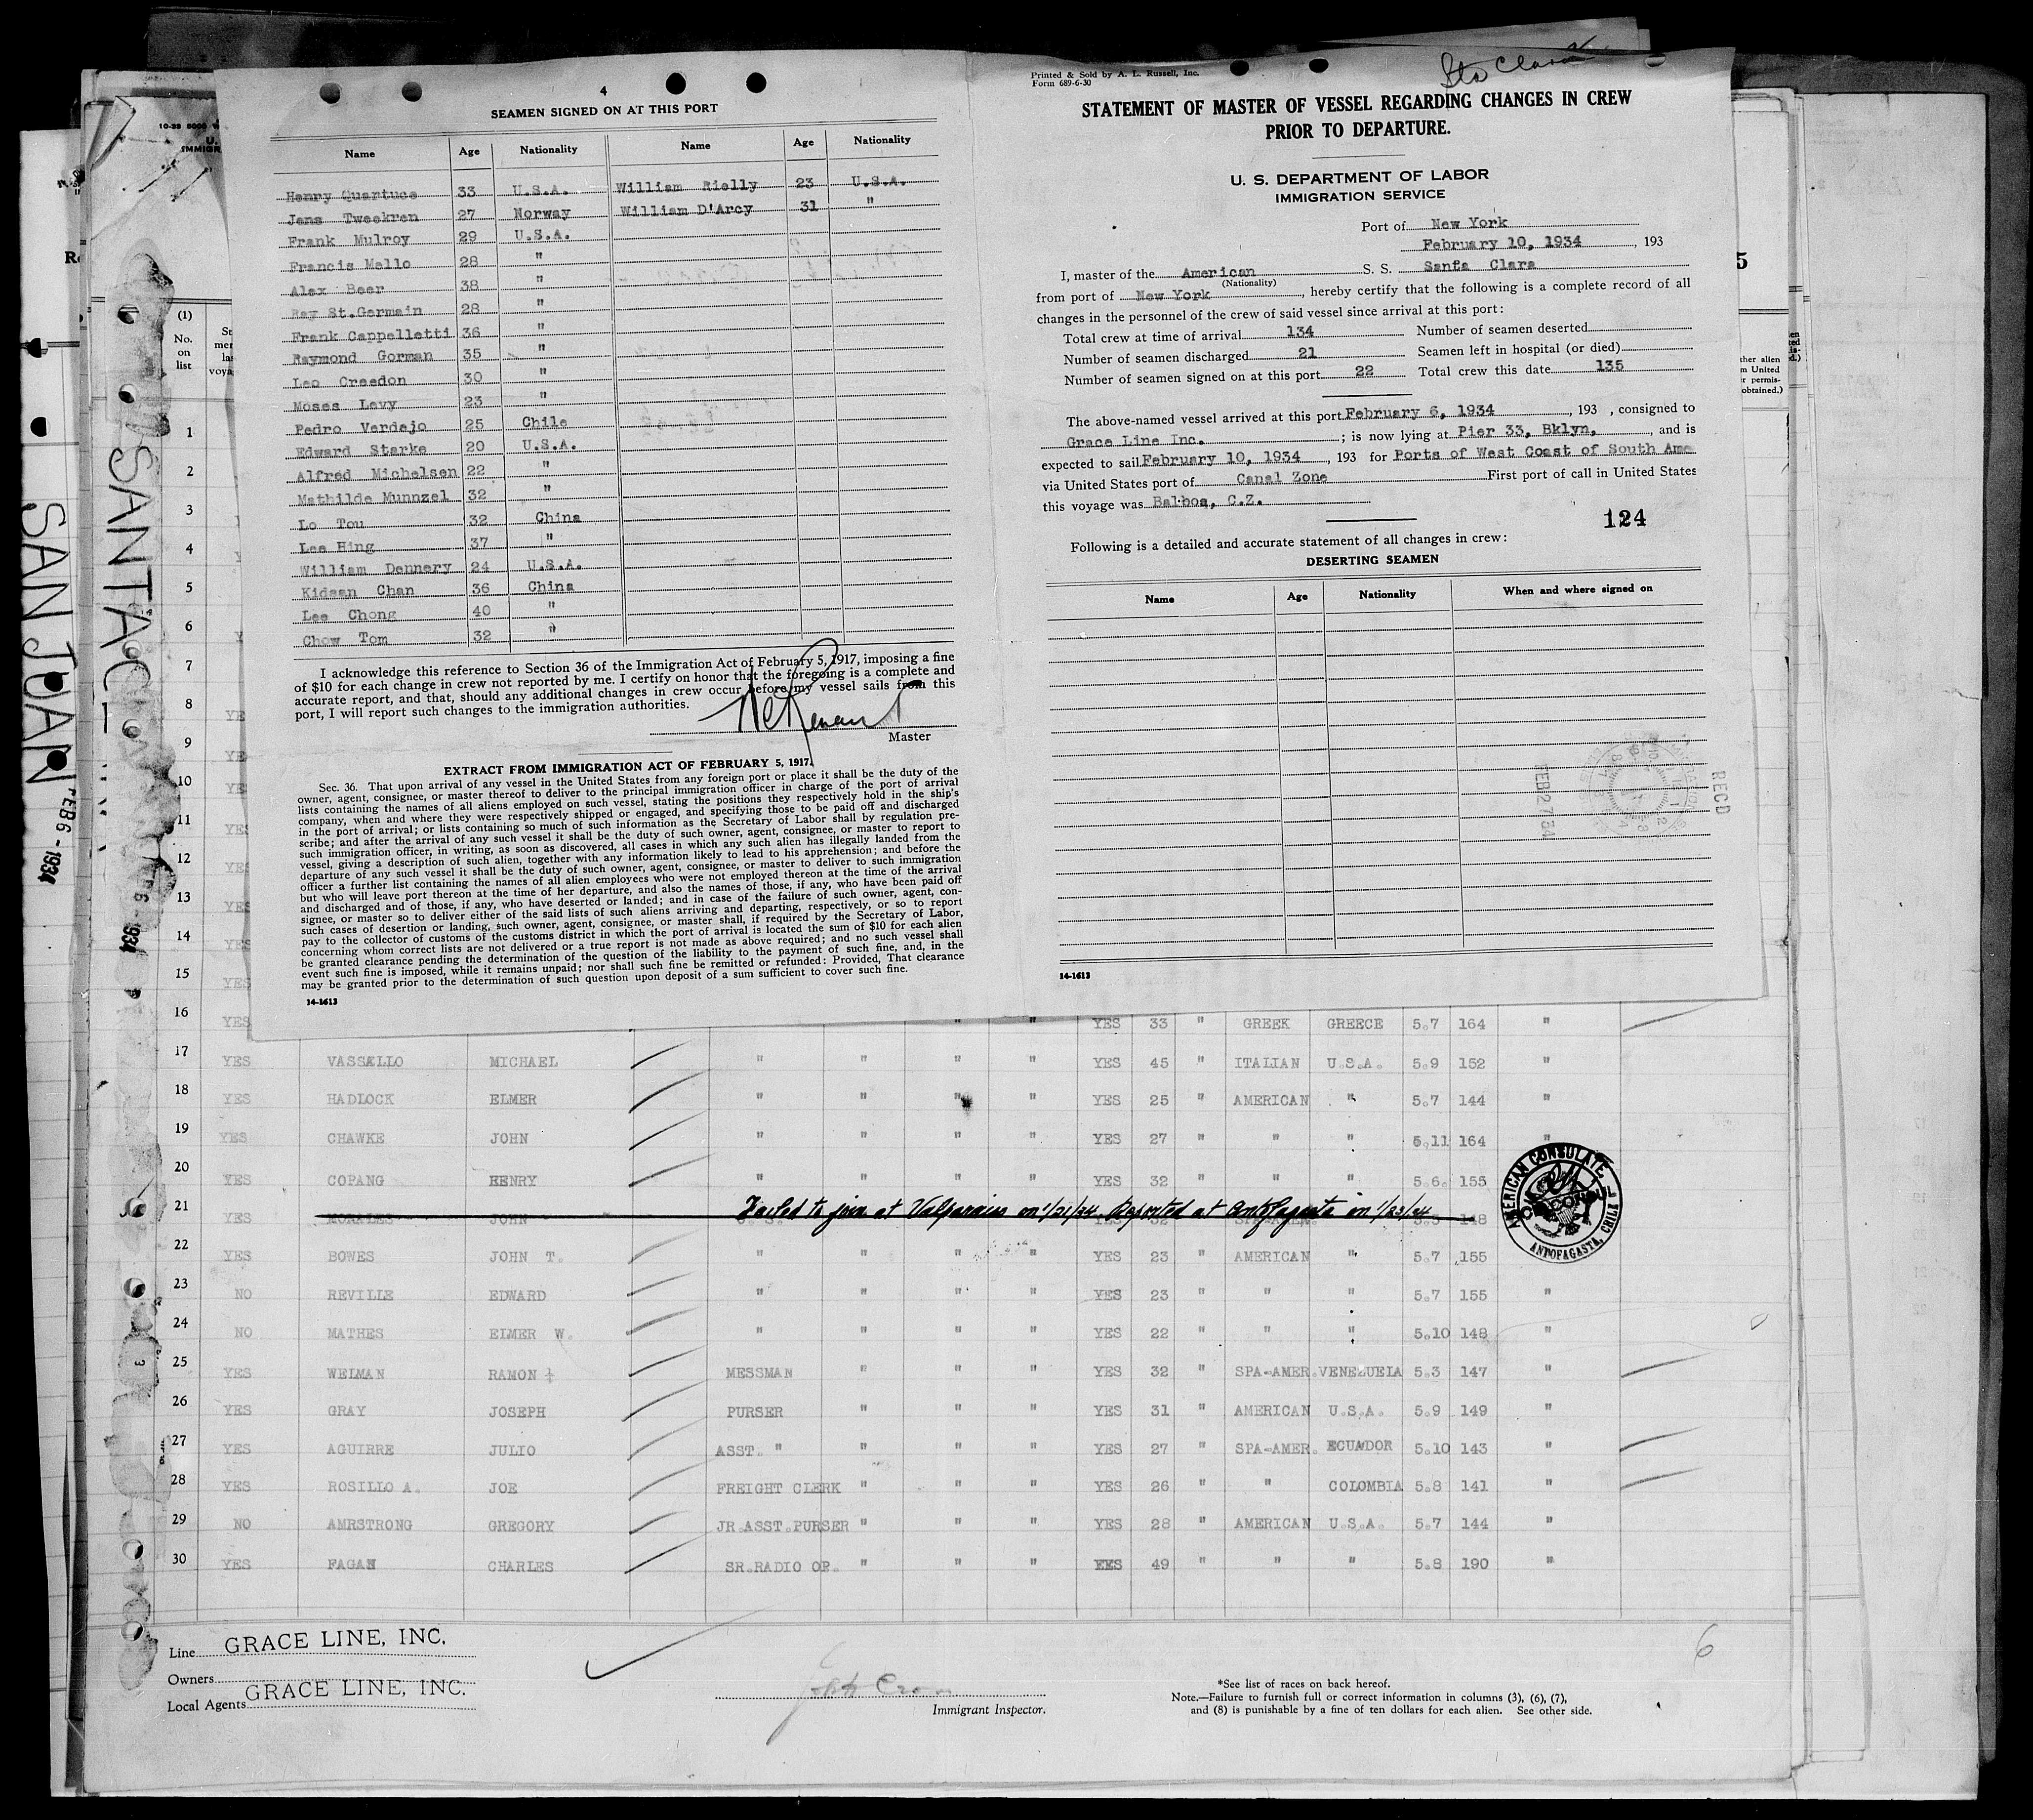 4
SEAMEN SIGNED ON AT THIS PORT
Name Age Nationality Name Age Nationality
Henry Quartuce 33 U.S.A. William Rielly 23 U.S.A.
Jens Tweekren 27 Norway William D'Arcy 31 "
Frank Mulroy 29 U.S.A.
Francis Mello 28 "
Alex Beer 38 "
Ray St.Germain 28 "
Frank Cappelletti 36 "
Raymond Gorman 35 "
Leo Creedon 30 "
Moses Levy 23 "
Pedro Verdejo 25 Chile
Edward Starke 20 U.S.A.
Alfred Michelsen 22 "
Mathilde Munnzel 32 "
Lo Tou 32 China
Lee Hing 37 "
William Dennery 24 U.S.A.
Kidsan Chan 36 China
Lee Chong 40 "
Chow Tom 32 "
I acknowledge this reference to Section 36 of the Immigration Act of February 5, 1917, imposing a fine
of $10 for each change in crew not reported by me. I certify on honor that the foregoing is a complete and
accurate report, and that, should any additional changes in crew occur before my vessel sails from this
port, I will report such changes to the immigration authorities.
Master
EXTRACT FROM IMMIGRATION ACT OF FEBRUARY 5, 1917.
Sec. 36. That upon arrival of any vessel in the United States from any foreign port or place it shall be the duty of the
owner, agent, consignee, or master thereof to deliver to the principal immigration officer in charge of the port of arrival
lists containing the names of all aliens employed on such vessel, stating the positions they respectively hold in the ship's
company, when and where they were respectively shipped or engaged, and specifying those to be paid off and discharged
in the port of arrival; or lists containing so much of such information as the Secretary of Labor shall by regulation pre-
scribe; and after the arrival of any such vessel it shall be the duty of such owner, agent, consignee, or master to report to
such immigration officer, in writing, as soon as discovered, all cases in which any such alien has illegally landed from the
vessel, giving a description of such alien, together with any information likely to lead to his apprehension; and before the
departure of any such vessel it shall be the duty of such owner, agent, consignee, or master to deliver to such immigration
officer a further list containing the names of all alien employees who were not employed thereon at the time of the arrival
but who will leave port thereon at the time of her departure, and also the names of those, if any, who have been paid off
and discharged and of those, if any, who have deserted or landed; and in case of the failure of such owner, agent, con-
signee, or master so to deliver either of the said lists of such aliens arriving and departing, respectively, or so to report
such cases of desertion or landing, such owner, agent, consignee, or master shall, if required by the Secretary of Labor,
pay to the collector of customs of the customs district in which the port of arrival is located the sum of $10 for each alien
concerning whom correct lists are not delivered or a true report is not made as above required; and no such vessel shall
be granted clearance pending the determination of the question of the liability to the payment of such fine, and, in the
event such fine is imposed, while it remains unpaid; nor shall such fine be remitted or refunded: Provided, That clearance
may be granted prior to the determination of such question upon deposit of a sum sufficient to cover such fine.
14-1613
Printed & Sold by A. L. Russell, Inc.
Form 689-6-30
Sta Clara
STATEMENT OF MASTER OF VESSEL REGARDING CHANGES IN CREW
PRIOR TO DEPARTURE.
U. S. DEPARTMENT OF LABOR
IMMIGRATION SERVICE
Port of New York
February 10, 1934 , 193
I, master of the American S. S. Santa Clara
(Nationality)
from port of New York , hereby certify that the following is a complete record of all
changes in the personnel of the crew of said vessel since arrival at this port:
Total crew at time of arrival 134 Number of seamen deserted
Number of seamen discharged 21 Seamen left in hospital (or died)
Number of seamen signed on at this port 22 Total crew this date 135
The above-named vessel arrived at this port February 6, 1934 , 193 , consigned to
Grace Line Inc. ; is now lying at Pier 33, Bklyn, and is
expected to sail February 10, 1934 , 193 for Ports of West Coast of South Ame
via United States port of Canal Zone First port of call in United States
this voyage was Balboa, C.Z.
124
Following is a detailed and accurate statement of all changes in crew:
DESERTING SEAMEN
Name Age Nationality When and where signed on
RECD
FEB 27 34
14-1613
SAN JUAN
FEB 6 - 1934
SANTA C
(1)
No.
on
list
1
2
3
4
5
6
7
8
9
10
11
12
13
14
15
16 YES " " YES 33 " GREEK GREECE 5.7 164 "
17 YES VASSALLO MICHAEL " " " " YES 45 " ITALIAN U.S.A. 5.9 152 "
18 YES HADLOCK ELMER " " " " YES 25 " AMERICAN " 5.7 144 "
19 YES CHAWKE JOHN " " " " YES 27 " " " 5.11 164 "
20 YES COPANG HENRY " " " " YES 32 " " " 5.6 155
21 YES MORALES JOHN Failed to join at Valparaiso on 1/21/34 Reported at Antofagasta on 1/23/34 148
AMERICAN CONSULATE
ANTOFAGASTA, CHILE
22 YES BOWES JOHN T. " " " " YES 23 " AMERICAN " 5.7 155
23 NO REVILLE EDWARD " " " " YES 23 " " " 5.7 155 "
24 NO MATHES ELMER W. " " " " YES 22 " " " 5.10 148 "
25 YES WELMAN RAMON MESSMAN " " " YES 32 " SPA-AMER. VENEZUELA 5.3 147 "
26 YES GRAY JOSEPH PURSER " " " YES 31 " AMERICAN U.S.A. 5.9 149 "
27 YES AGUIRRE JULIO ASST. " " " " YES 27 " SPA-AMER. ECUADOR 5.10 143 "
28 YES ROSILLO A. JOE FREIGHT CLERK " " " YES 26 " " COLOMBIA 5.8 141 "
29 NO AMRSTRONG GREGORY JR.ASST.PURSER " " " YES 28 " AMERICAN U.S.A. 5.7 144 "
30 YES FAGAN CHARLES SR.RADIO OP. " " " YES 49 " " " 5.8 190 "
Line GRACE LINE, INC.
Owners
Local Agents GRACE LINE, INC.
Immigrant Inspector.
*See list of races on back hereof.
Note.—Failure to furnish full or correct information in columns (3), (6), (7),
and (8) is punishable by a fine of ten dollars for each alien. See other side.
6